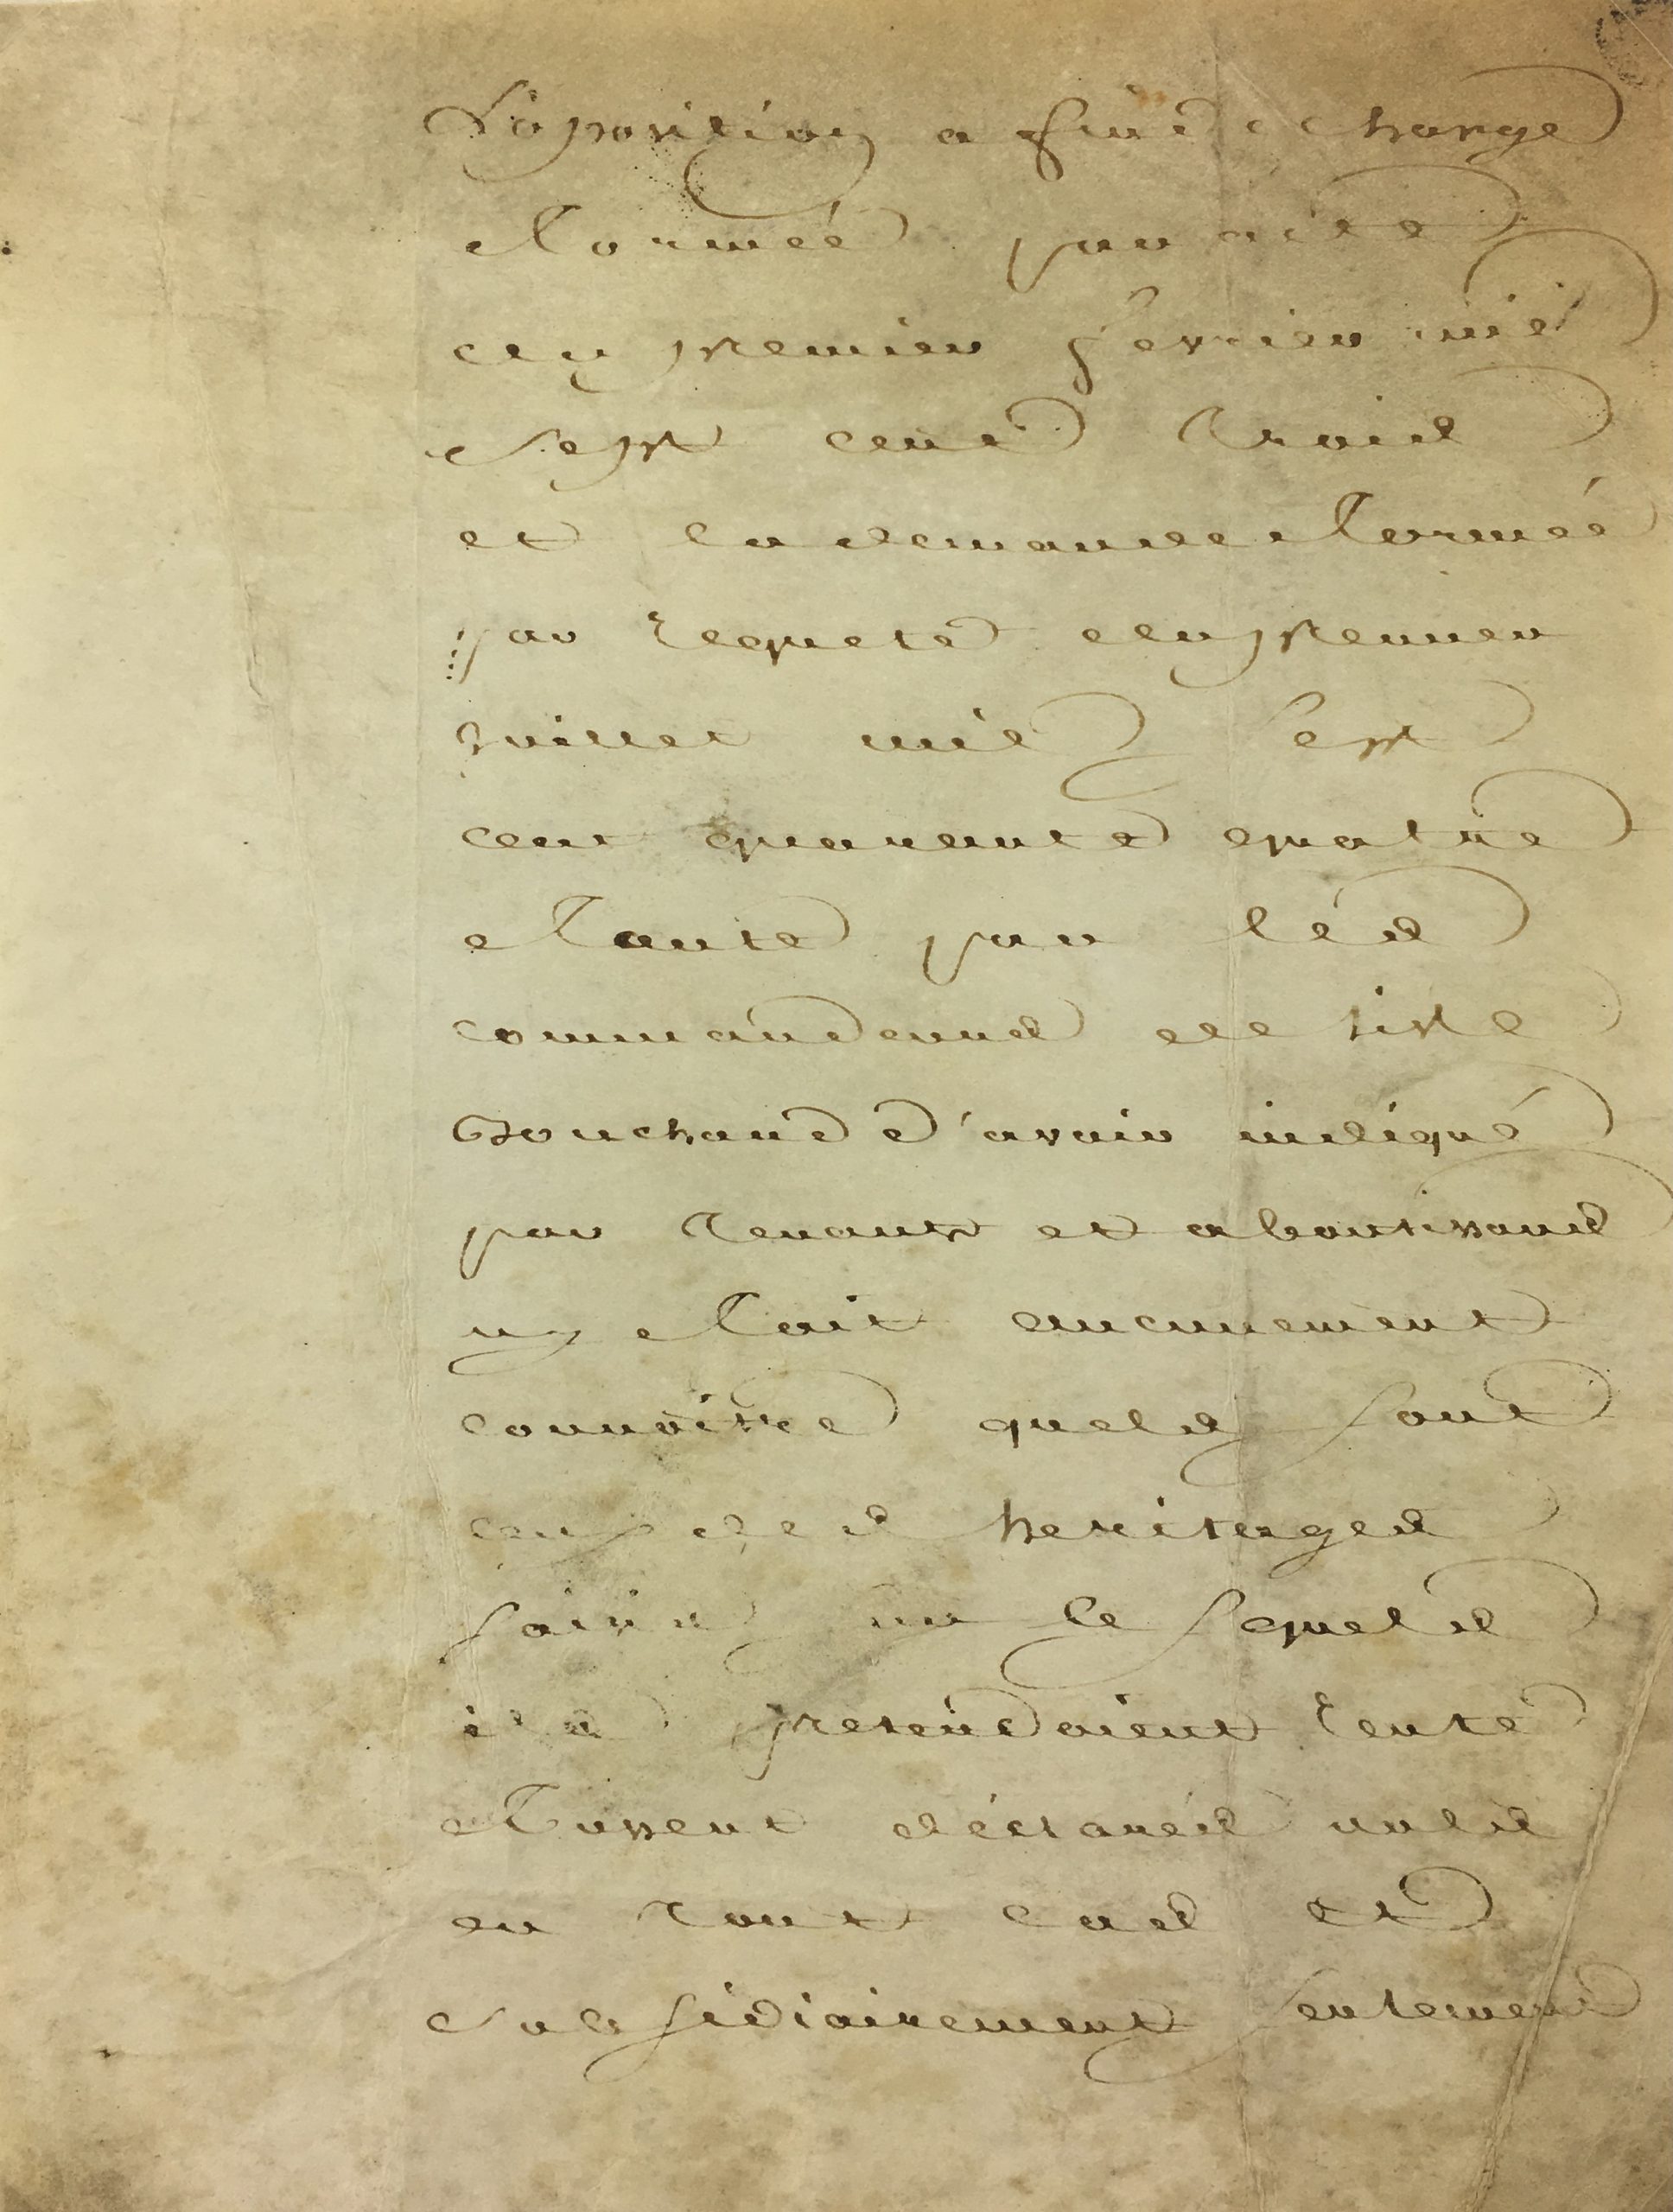 L'oposition a fin de charge
formée par acte
du premier février mil
sept cent trois
et la demande formée
par requete du premier
juillet mil sept
cent quarante quatre
faute par les
commandeurs de
Bouchaud d'avoir indiqué
par tenants et aboutissans
ny fait aucunement
connoitre quels sont
ceux des heritages
saisis sur lesquels
ils pretendoient rente
fussent déclarés nuls
en tout cas et
subsidiairement seulement